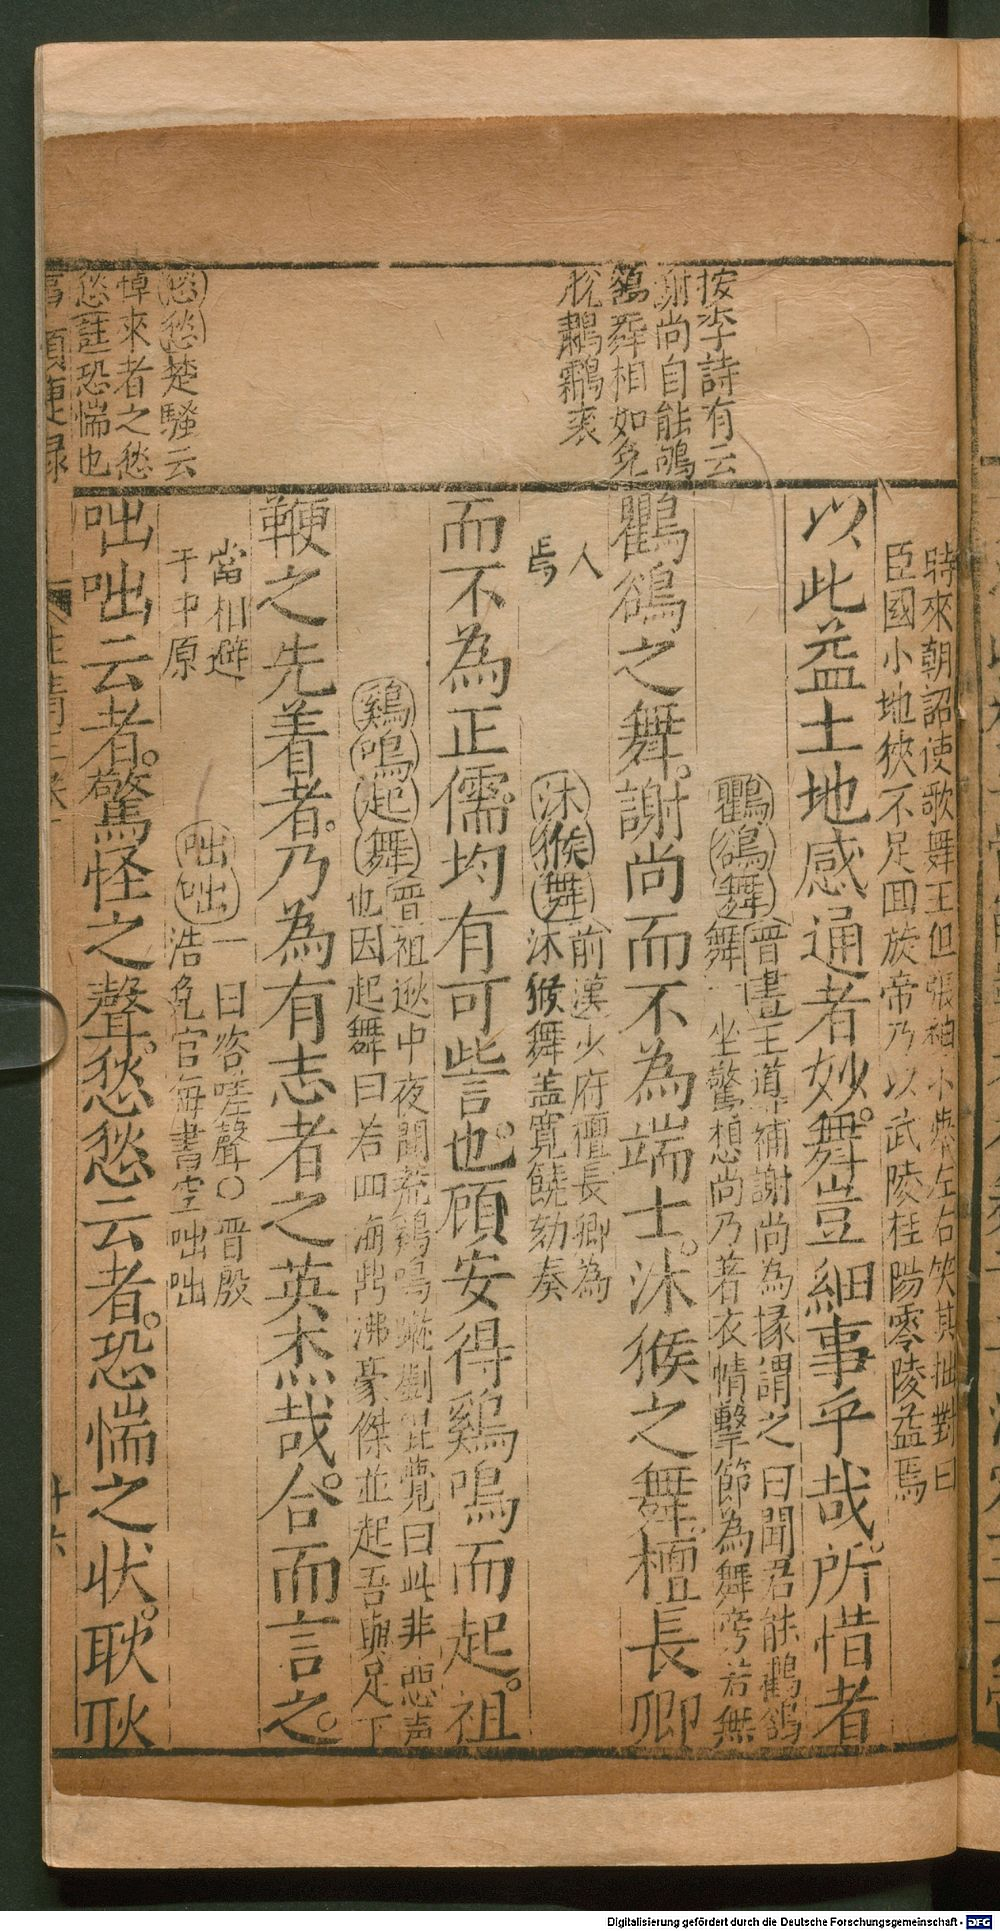 按李詩有云
謝尚自能鴝
鵒舞相如免
脫鷫鸘裘
愁愁楚騷云
悼來者之愁
愁註恐惴也
時來朝詔使歌舞王但張袖小舉左右笑其拙對曰
臣國小地狹不足回旋帝乃以武陵桂陽零陵益焉
以此益土地感通者妙舞豈細事乎哉所惜者
鸜鵒舞晋書王導補謝尚為掾謂之曰聞君能鸜鵒
舞一坐驚想尚乃著衣幘擊節為舞旁若無
鸜鵒之舞謝尚而不為端士沐猴之舞檀長卿
人
焉
沐猴舞前漢少府檀長卿為
沐猴舞盖寛饒劾奏
而不為正儒均有可訾也頋安得鷄鳴而起祖
鷄鳴起舞晋祖逖中夜聞荒鷄鳴蹴劉琨覺曰此非惡声
也因起舞曰若四海沸豪傑並起吾與足下
鞭之先着者乃為有志者之英杰哉合而言之
當相避
于中原
咄咄一曰咨嗟聲〇晋殷
浩免官每書空咄咄
咄咄云者驚怪之聲愁愁云者恐惴之状耿耿
Digitalisierung gefördert durch die Deutsche Forschungsgemeinschaft - DFG